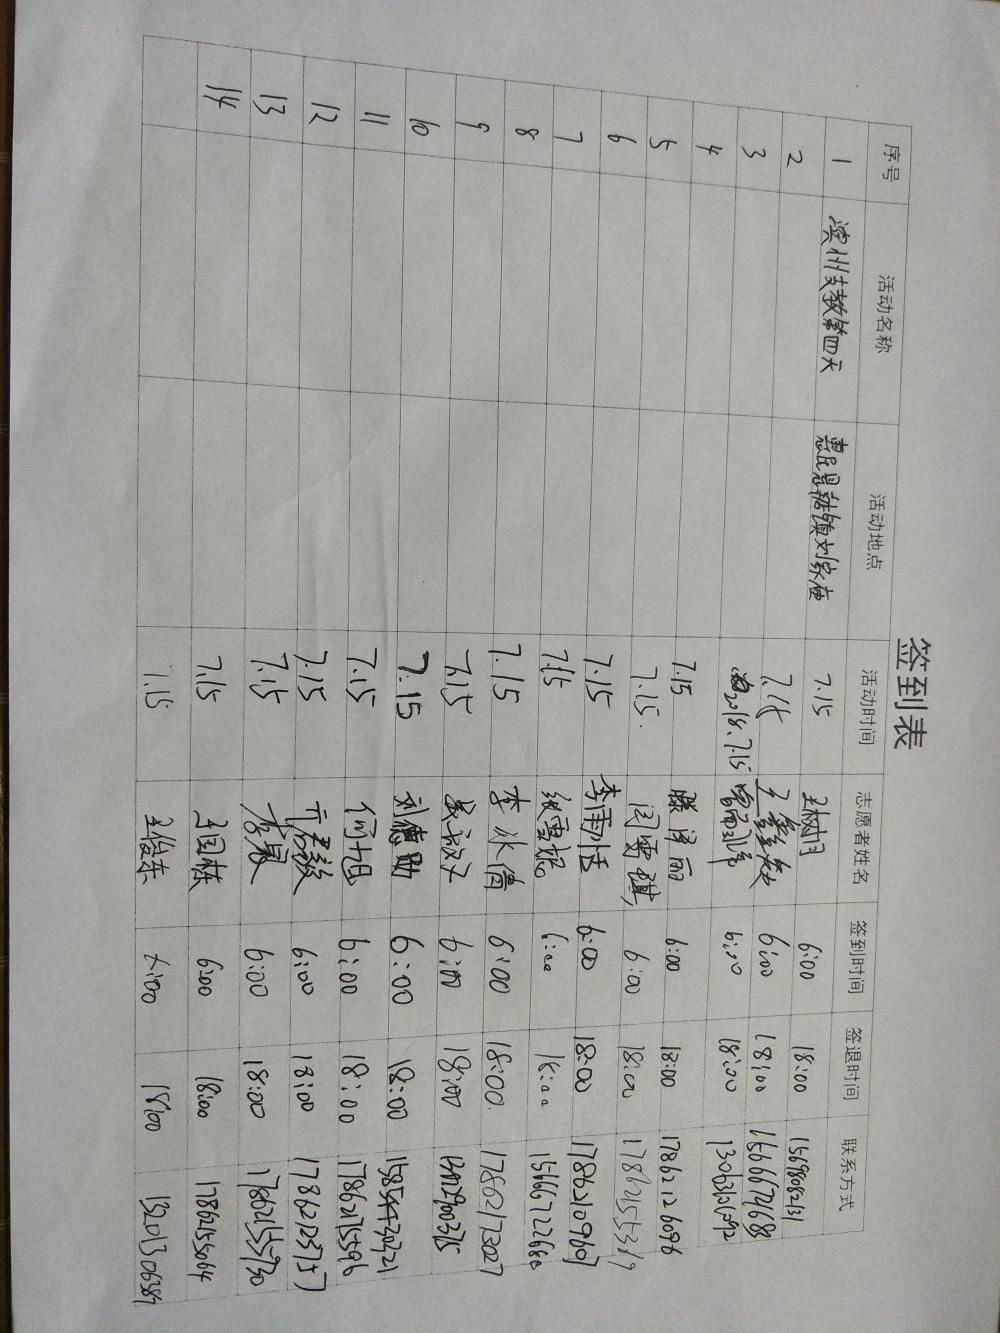 签到表
序号 活动名称 活动地点 活动时间 志愿者姓名 签到时间 签退时间 联系方式
1 滨州支教第四天 惠民县 镇刘家庙 7.15 6:00 18:00 15698082131
2 7.15 6:00 18:00 15666721688
3 2018.7.15 6:00 18:00
4 7.15 滕泽丽 6:00 18:00 17862126096
5 7.15 闫雪琪 6:00 18:00 17862155319
6 7.15 李雨恬 6:00 18:00 17862109607
7 7.15 6:00 18:00 15666722680
8 7.15 李冰倩 6:00 18:00 17862173027
9 7.15 6:00 18:00
10 7.15 刘德勋 6:00 18:00
11 7.15 何旭 6:00 18:00 17862175596
12 7.15 6:00 18:00 17862125757
13 7.15 6:00 18:00 17862155730
14 7.15 王国栋 6:00 18:00 17862155064
7.15 王俊东 6:00 18:00